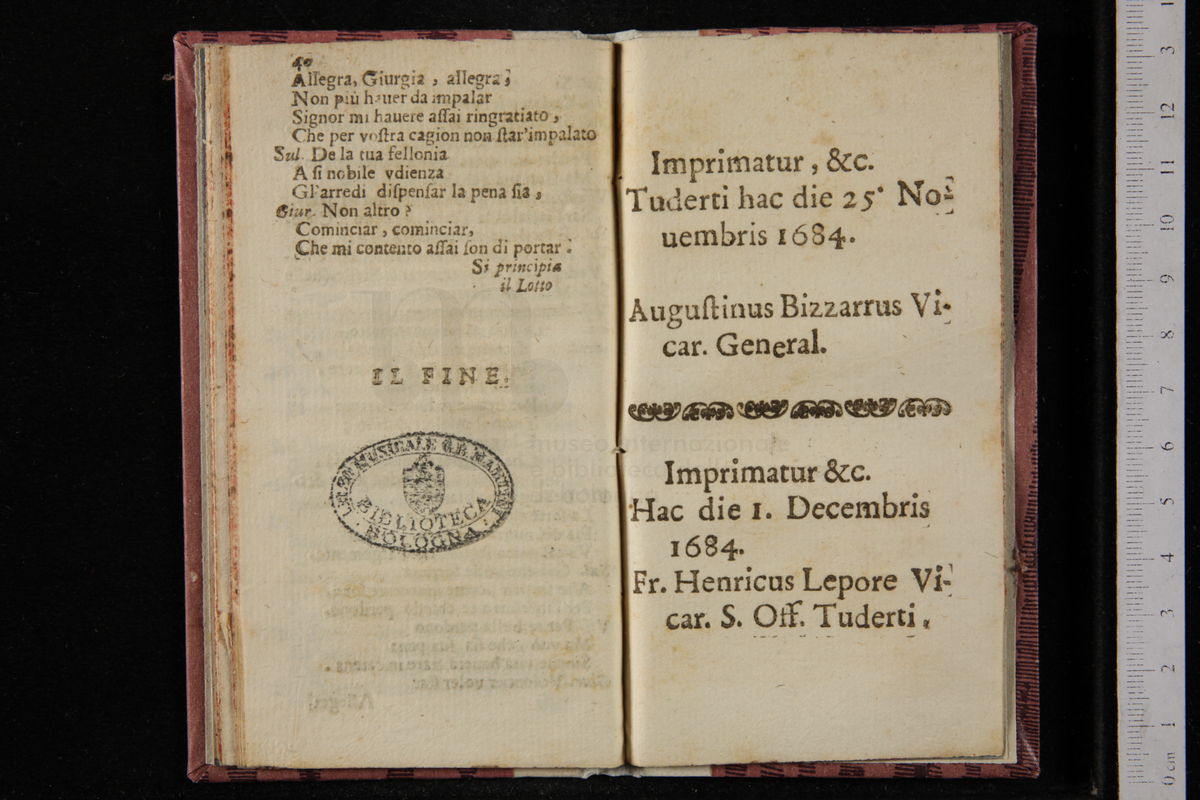 40
Allegra, Giurgia, allegra;
Non più hauer da impalar
Signor mi hauere aſſai ringratiato,
Che per voſtra cagion non ſtar'impalato
Sul. De la tua fellonia
A ſi nobile vdienza
Gl'arredi diſpenſar la pena ſia,
Giur. Non altro?
Cominciar, cominciar,
Che mi contento aſſai ſon di portar.
Si principia
il Lotto
IL FINE.
LICEO MUSICALE G.B. MARTINI
BIBLIOTECA
BOLOGNA
Imprimatur, &c.
Tuderti hac die 25. No-
uembris 1684.
Auguſtinus Bizzarrus Vi-
car. General.
museo internazionale
e biblioteca
Imprimatur &c.
Hac die 1. Decembris
1684.
Fr. Henricus Lepore Vi-
car. S. Off. Tuderti.
3
12
11
10
9
8
7
6
5
4
3
2
1
0 cm